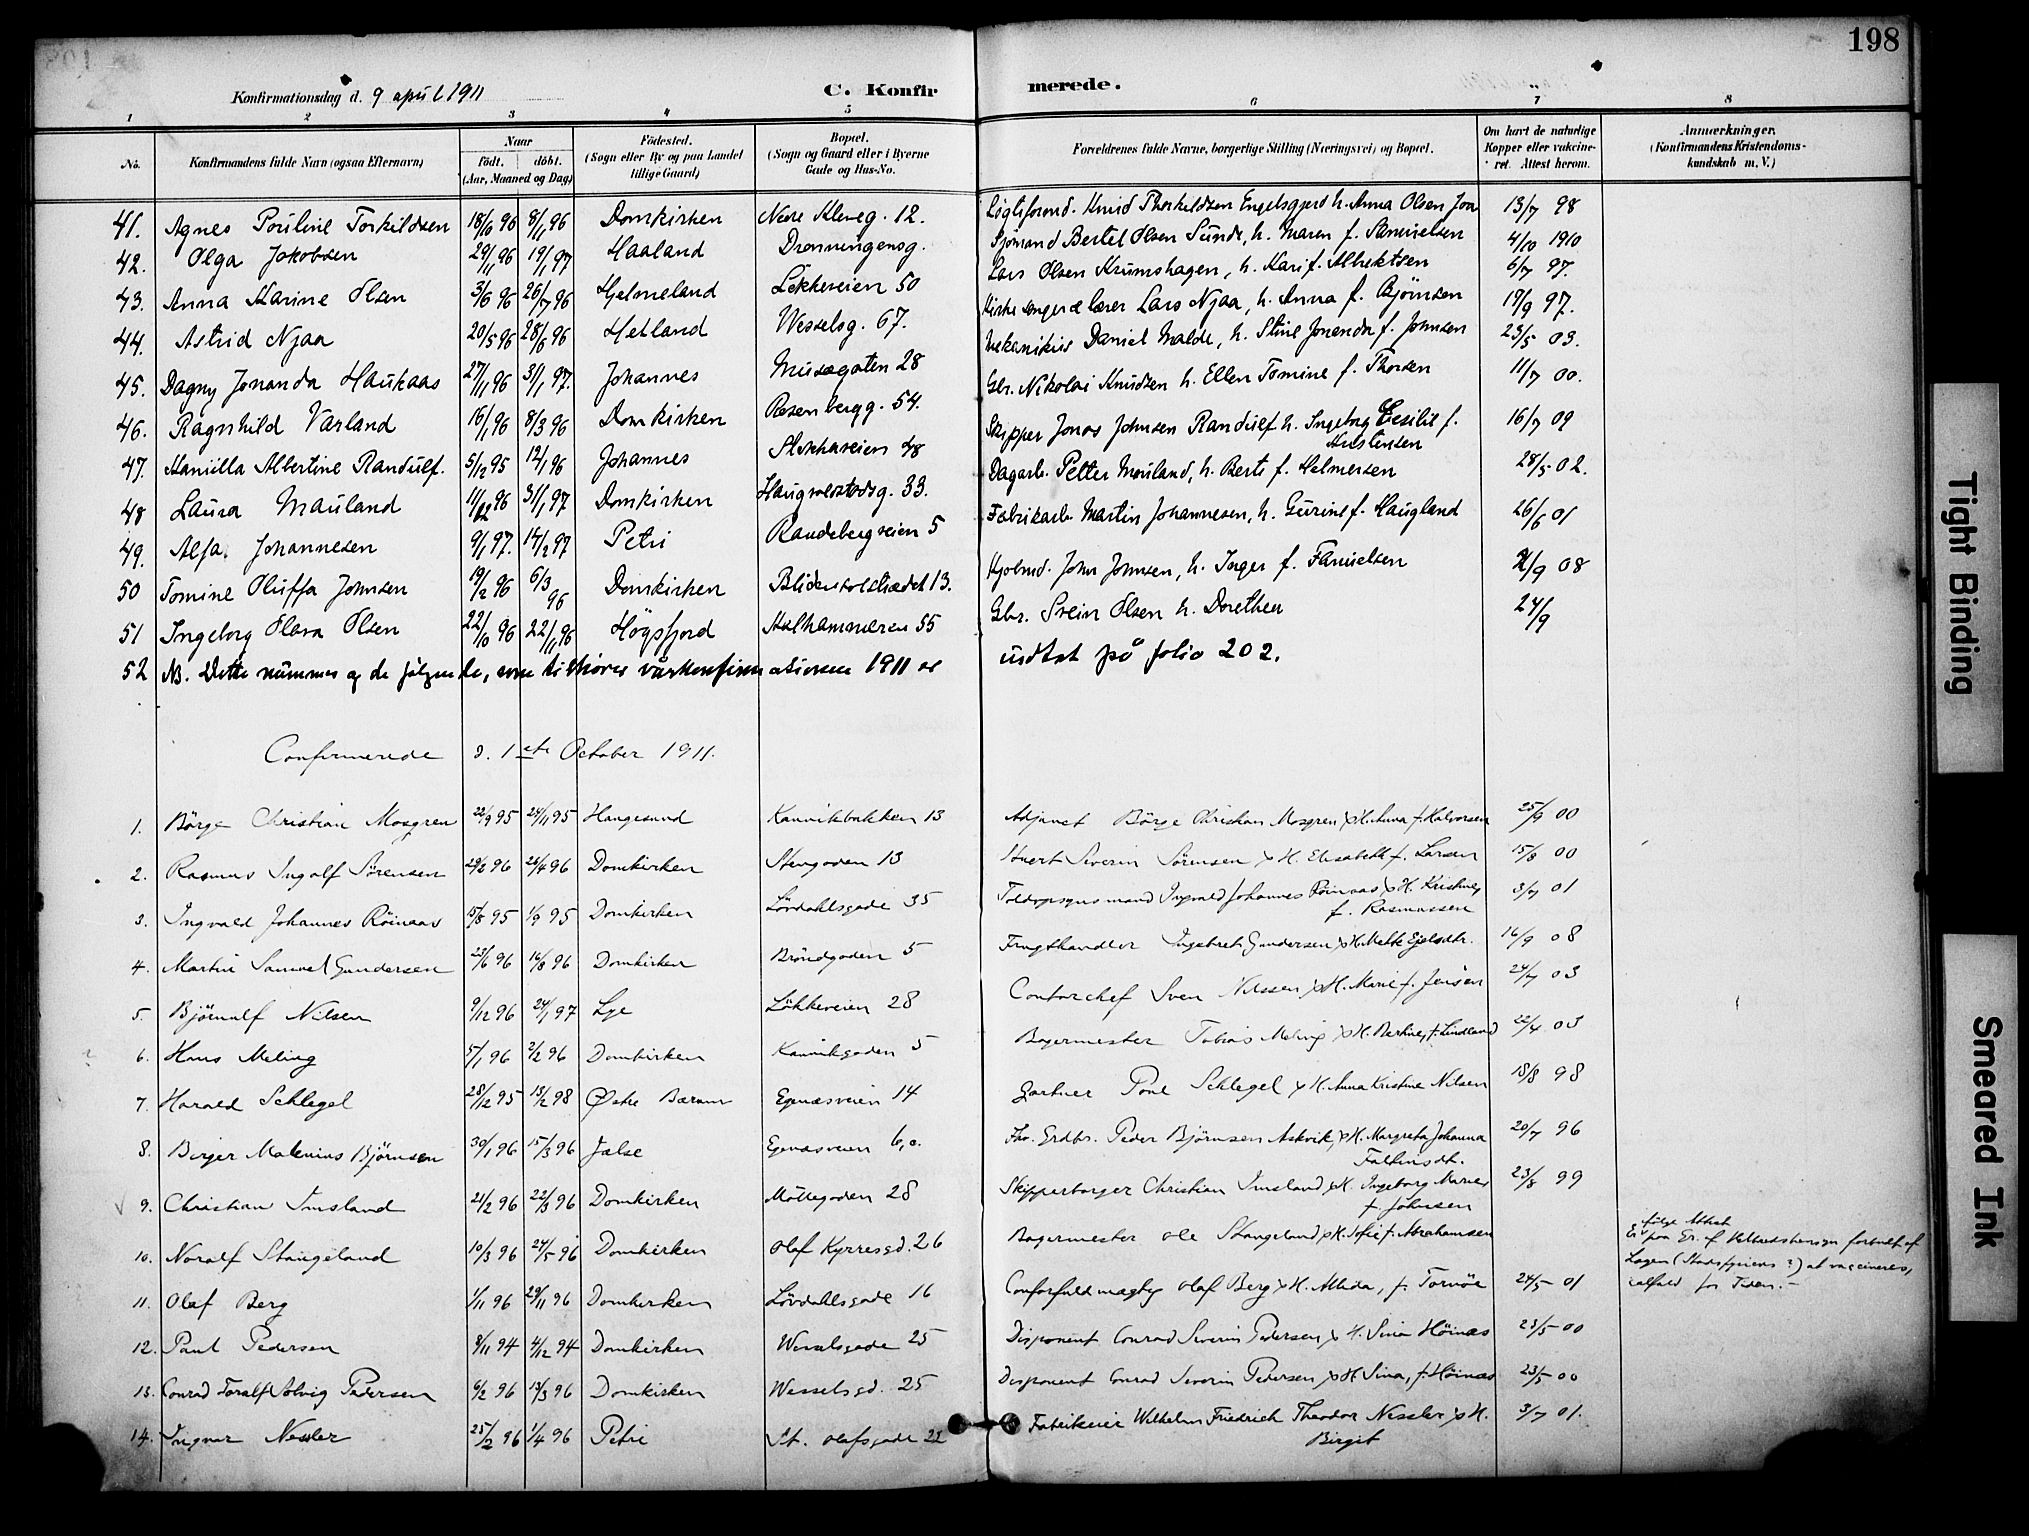 198
Konfirmationsdag d. 9 april 1911 C. Konfirmerede.
1 2 3 4 5 6 7 8
No. Konfirmandens fulde Navn (ogsaa Efternavn) Naar født. døbt. (Aar, Maaned og Dag) Fødested. (Sogn eller By og paa Landet tillige Gaard) Bopæl. (Sogn og Gaard eller i Byerne Gade og Hus-No. Forældrenes fulde Navne, borgerlige Stilling (Næringsvei) og Bopæl. Om havt de naturlige Kopper eller vaccineret. Attest herom. Anmærkninger. (Konfirmandens Kristendomskundskab m. V.)
41. Agnes Pouline Torkildsen 18/10 96 8/11 96 Domkirken Nedre 12. Knud Thorkildsen h. Anna Olsen 13/7 98
42. Olga Jakobsen 29/11 96 19/1 97 Haaland Dronningensg. Sjømand Bertel Olsen Sunde, h. Maren f. Samuelsen 4/10 1910
43. Anna Karine Olsen 3/6 96 26/7 96 Hjelmeland Løkkeveien 50 Lars Olsen Krumshagen, h. Kari f. 6/7 97.
44. Astrid Njaa 20/5 96 28/6 96 Hetland Wesselsg. 67. Kirkesanger & lærer Lars Njaa, h. Anna f. Bjørnsen 17/9 97.
45. Dagny Jonanda Haukaas 27/11 96 31/1 97. Johannes Musægaten 28 Mekanikus Daniel Malde, h. Stine Jonanda f. Johnsen 23/5 03.
46. Ragnhild Varland 16/1 96 8/3 96 Domkirken Rosenbergg. 54. Gbr. Nikolai Knudsen h. Ellen Tomine f. Thorsen 11/7 00.
47. Albertine Randulf. 5/12 95 12/1 96 Johannes Stokkaveien 48 Skipper Jonas Johnsen Randulf h. Ingeborg Cesilie f. Kristensen 16/7 09
48 Laura Mauland 11/12 96 31/1 97 Domkirken Haugvaldstadsg. 33. Dagarb. Petter Mauland, h. Berte f. Helmersen 28/5 02.
49. Alfa Johannesen 9/1 97. 14/2 97 Petri Randebergveien 5 Fabrikarb. Martin Johannesen, h. Gurine f. Haugland 26/6 01
50 Tomine Oluffa Johnsen 19/2 96 6/3 96 Domkirken 13. John Johnsen, h. Inger f. 2/9 08
51 Ingeborg Olava Olsen 22/10 96 22/11 96 Høgsfjord Kalhammeren 55 Gbr. Svein Olsen h. Dorethea 24/9
52 NB. Dette nummer og de følgende, som tilhører vårkonfirmationen 1911 er indtat på folio 202.
Confirmerede d. 1ste October 1911.
1. Börge Christian Mosgren 22/9 95 24/11 95 Haugesund Kannikbakken 13 Adjunct Börge Christian Mosgren & H. Anna f. Halvorsen 25/9 00
2. Rasmus Ingolf Sörensen 29/2 96 26/4 96 Domkirken Stengaden 13 Stuert Severin Sörensen & H. Elisabeth f. Larsen 15/8 00
3. Ingvald Johannes Röinaas 15/8 95 1/9 95 Domkirken Lövdahlsgade 35 Toldopsynsmand Ingvald Johannes Röinaas & H. Kristine f. Rasmussen 3/7 01
4. Martin Samuel Gundersen 23/6 96 16/8 96 Domkirken Bröndgaden 5 Frugthandler Ingebret Gundersen & H. Mette 16/9 08
5. Björnulf Nilsen 9/12 96 24/1 97 Lye Lökkeveien 28 Contorchef Sven Nilssen & H. Marie f. Jensen 24/7 03
6. Hans Meling 5/1 96 2/2 96 Domkirken Kannikgaden 5 Bagermester Tobias Meling & H. Bertine, f. Lindland 22/4 03
7. Harald Schlegel 28/12 95 13/2 98 Østre Bærum Egenæsveien 14 Gartner Paul Schlegel & H. Anna Kristine Nilsen 18/8 98
8. Birger Malenius Björnsen 30/1 96 15/3 96 Jelse Egenæsveien 6, a. Fhv. Grdbr. Peder Björnsen Askvik & H. Margreta Johanna 20/7 96
9. Christian Imsland 21/2 96 22/3 96 Domkirken Möllegaden 28 Skipperborger Christian Imsland & H. Ingeborg Marie f. Johnsen 23/8 99
10. Noralf Stangeland 10/3 96 24/5 96 Domkirken Olaf Kyrresgd. 26 Bagermester Ole Stangeland & H. Sofie f. Abrahamsen Er ifølge Attest paa Gr. af Helbredshensyn forbudt af Lægen ( ?) at vaccineres, ialfald for Tiden. –
11. Olaf Berg 1/11 96 29/11 96 Domkirken Lövdahlsgade 16 Contorfuldmægtig Olaf Berg & H. f. Tornöe 24/5 01
12. Paul Pedersen 8/11 94 4/12 94 Domkirken Wesselsgade 25 Disponent Conrad Severin Pedersen & H. Sina Höinæs 23/5 00
13. Conrad Toralf Solvig Pedersen 6/2 96 13/3 96 Domkirken Wesselsgd. 25 Disponent Conrad Severin Pedersen & H. Sina, f. Höinæs 23/5 00
14. Ingvar Nessler 25/2 96 1/4 96 Petri St. Olafsgade 22 Fabrikeier Wilhelm Friedrich Theodor Nessler & H. Birgit 3/7 01.
Tight Binding
Smeared Ink